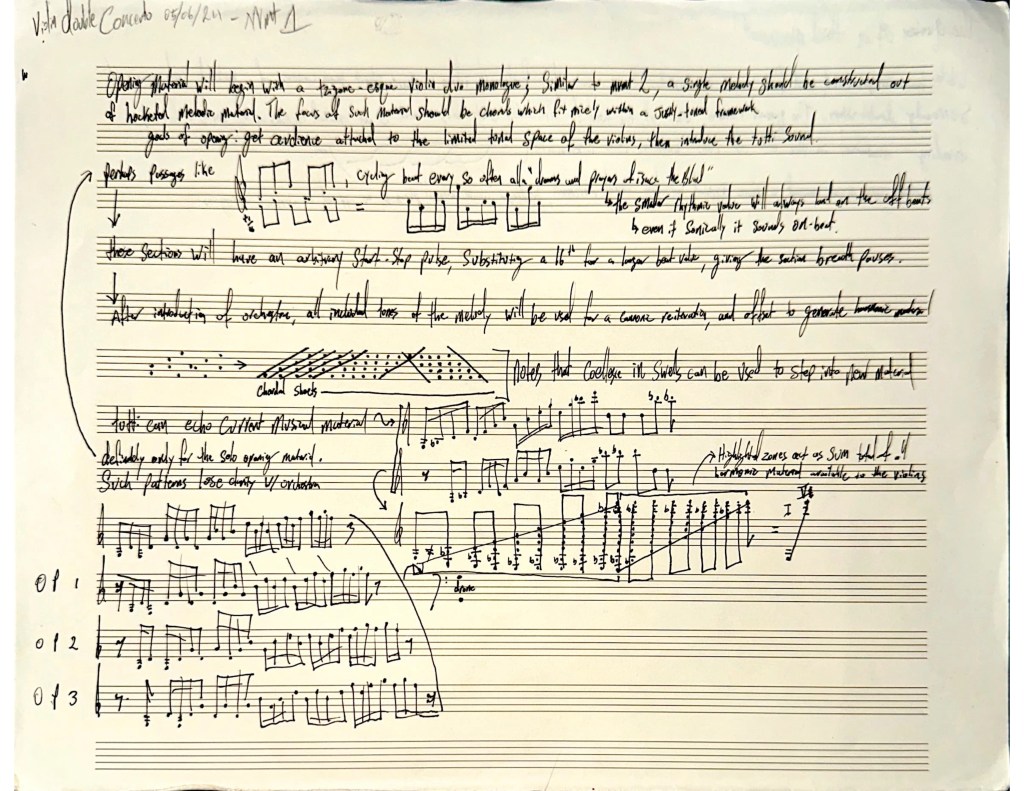 Violin double Concerto 05/06/24 - Mvmt 1
Opening Material will begin with a tzigane-esque violin duo monologue; Similar to mvmt 2, a single melody should be constructed out
of hocketed melodic material. The focus of such material should be chords which fit nicely within a Justly-tuned framework
goals of opening: get audience attached to the limited tonal space of the violins, then introduce the tutti sound.
Perhaps passages like
=
, cycling beat every so often alla "dreams and prayers of isaac the blind"
↳ the smaller rhythmic value will always land on the off beats
↳ even if sonically it sounds on-beat.
these sections will have an arbitrary Start-Stop pulse, Substituting a 16th for a longer beat value, giving the section breath pauses.
After introduction of orchestra, all included tones of the melody will be used for a canonic reiteration, and offset to generate harmonic material
Chordal sheets
Notes that Coellesce in Swells can be used to step into new material
tutti can echo Current Musical material
definitely only for the solo opening material.
Such patterns lose clarity w/ orchestra
→ Highlighted zones act as Sum total of all
harmonic material available to the violins
= I
: drone
Of 1
Of 2
Of 3